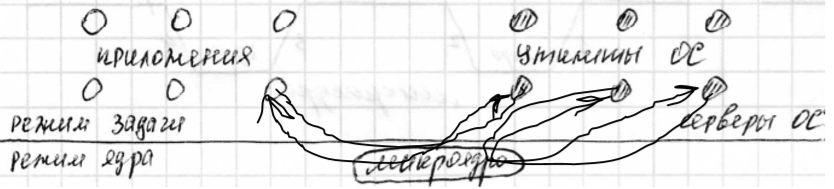 приложения утилиты ОС
режим задачи серверы ОС
режим ядра микроядро